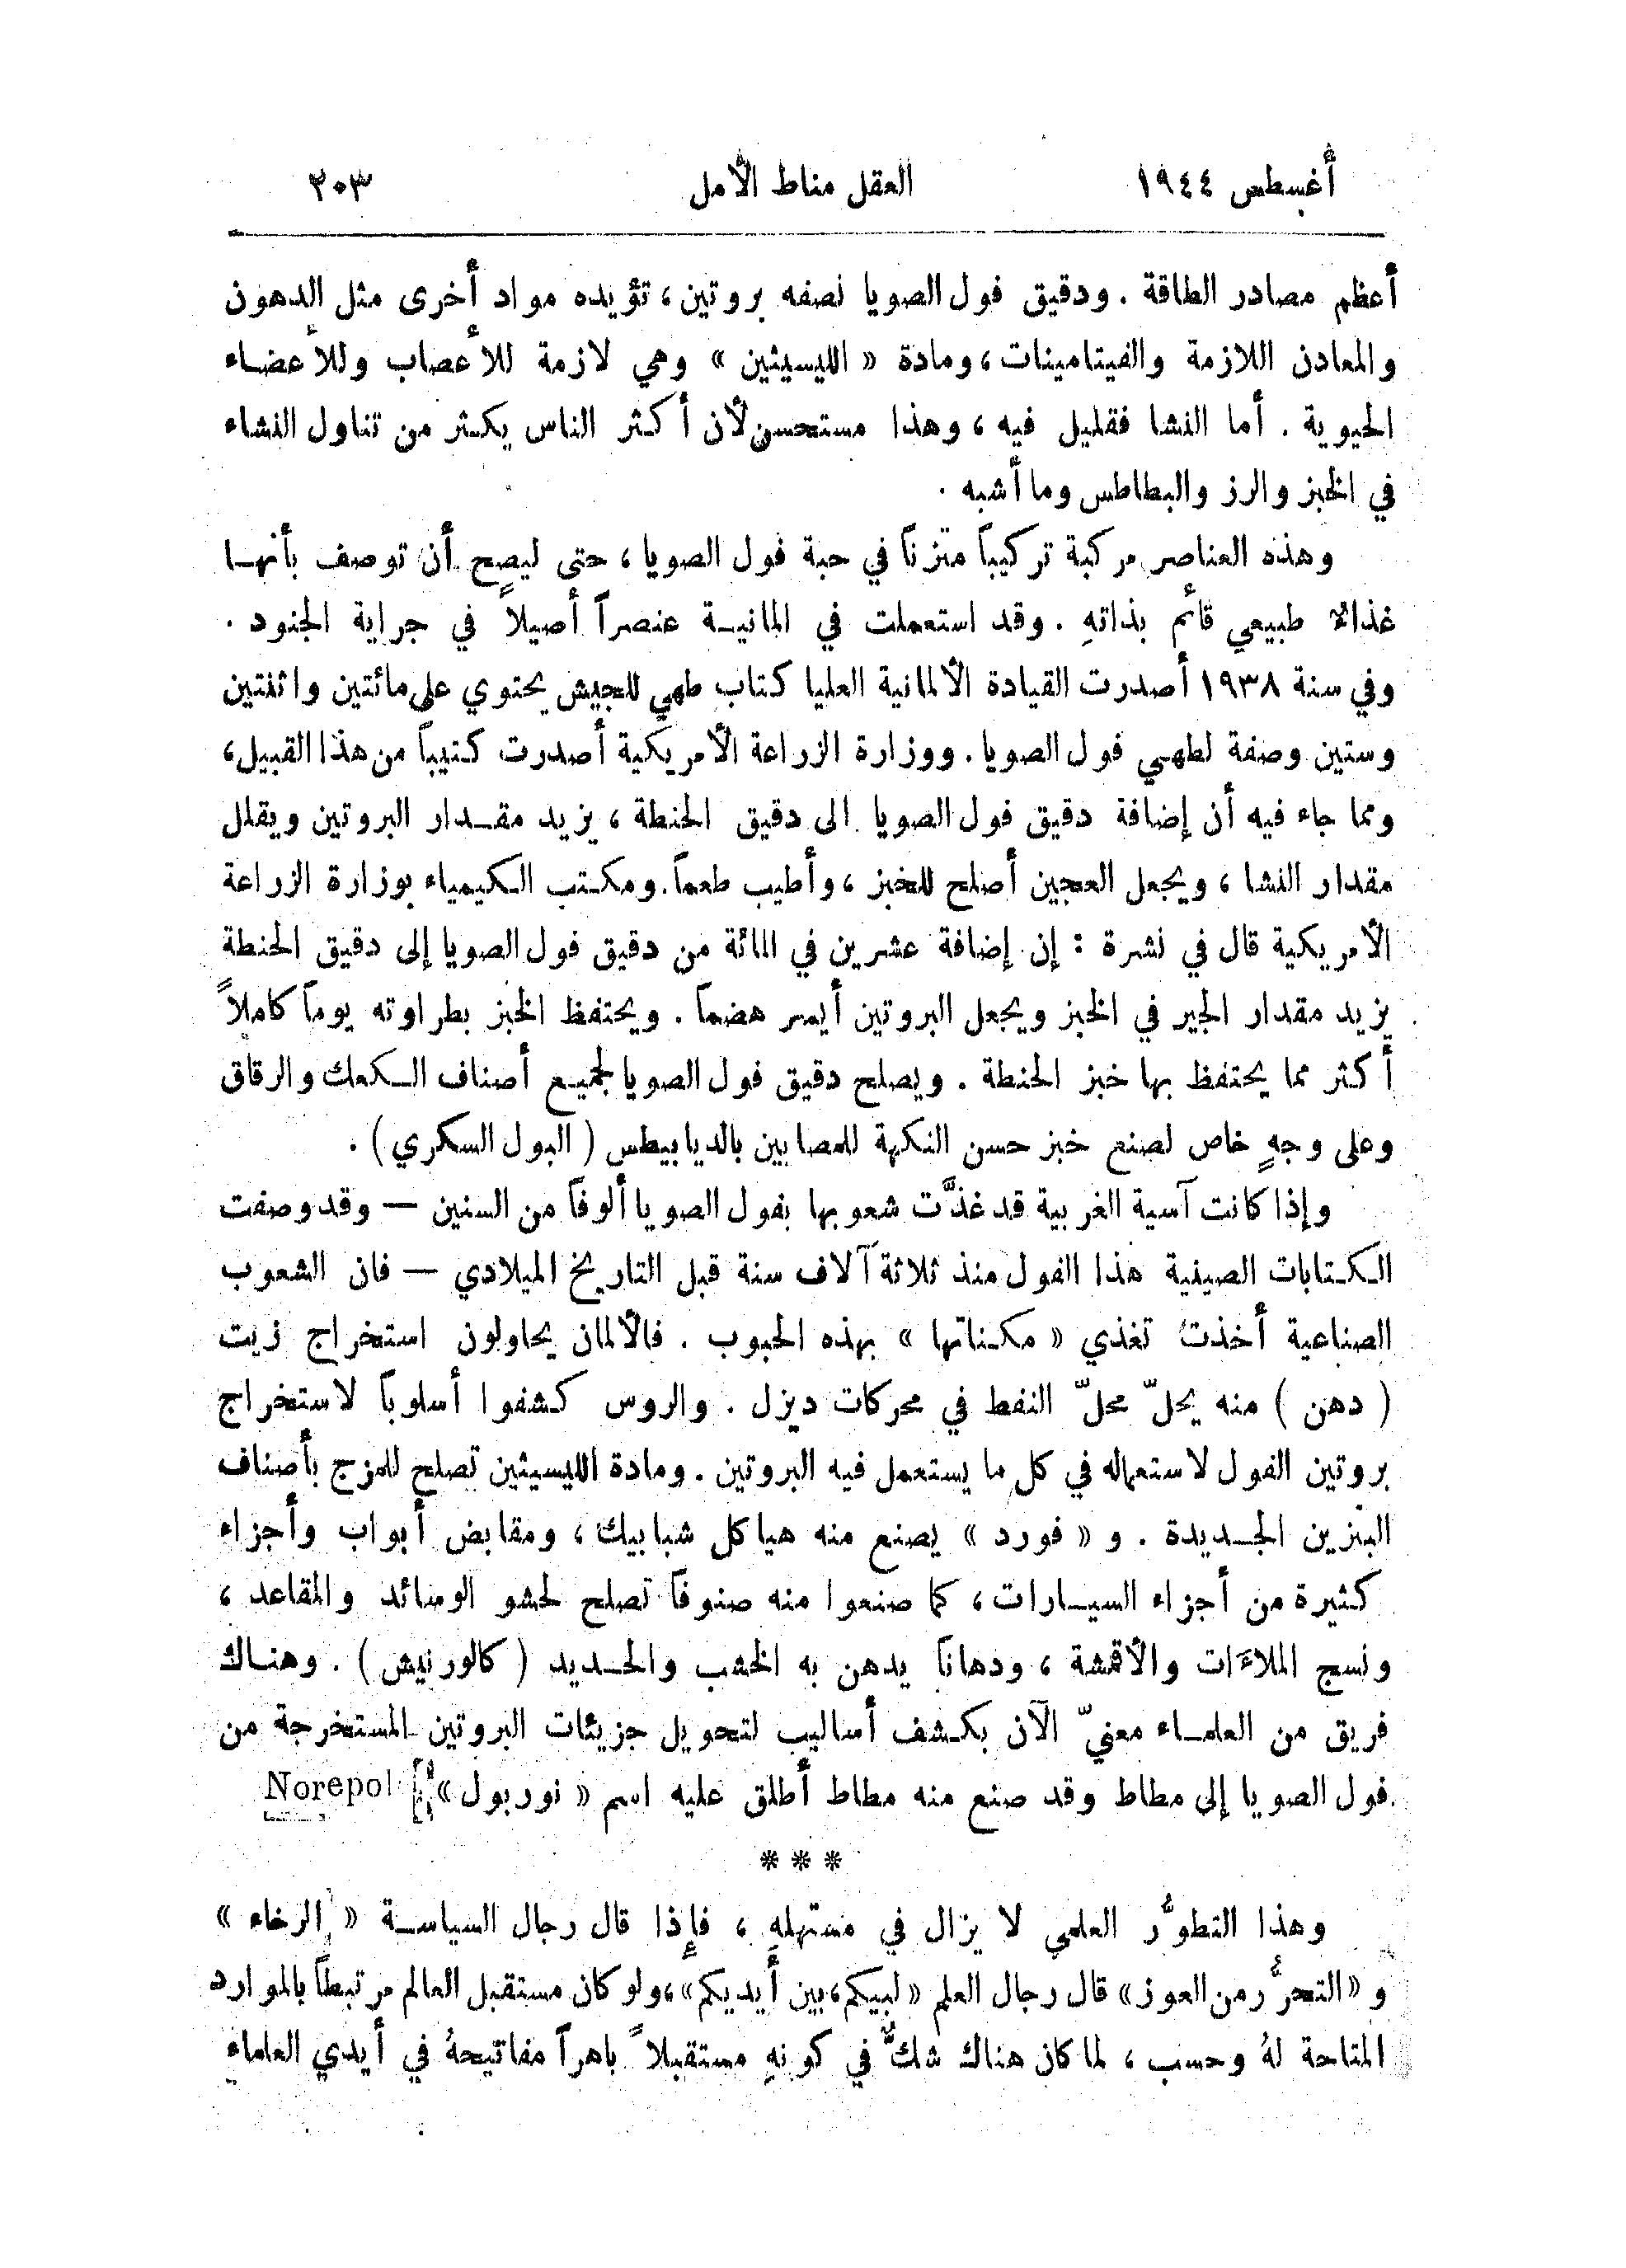 أغسطس ١٩٤٤ العقل مناط الأمل ٢٠٣
أعظم مصادر الطاقة . ودقيق فول الصويا نصفه بروتين ، تؤيده مواد أخرى مثل الدهون
والمعادن اللازمة والفيتامينات ، ومادة « الليسيثين » وهي لازمة للأعصاب وللأعضاء
الحيوية . أما النشا فقليل فيه ، وهذا مستحسن لأن أكثر الناس يكثر من تناول النشاء
في الخبز والرز والبطاطس وما أشبه .
وهذه العناصر مركبة تركيباً متزناً في حبة فول الصويا ، حتى ليصح أن توصف بأنها
غذاء طبيعي قائم بذاتهِ . وقد استعملت في المانية عنصراً أصيلاً في جراية الجنود .
وفي سنة ١٩٣٨ أصدرت القيادة الألمانية العليا كتاب طهي للجيش يحتوي على مائتين واثنتين
وستين وصفة لطهي فول الصويا . ووزارة الزراعة الأمريكية أصدرت كتيباً من هذا القبيل ،
ومما جاء فيه أن إضافة دقيق فول الصويا الى دقيق الحنطة ، يزيد مقدار البروتين ويقلل
مقدار النشا ، ويجعل العجين أصلح للخبز ، وأطيب طعماً . ومكتب الكيمياء بوزارة الزراعة
الأمريكية قال في نشرة : إن إضافة عشرين في المائة من دقيق فول الصويا إلى دقيق الحنطة
يزيد مقدار الجير في الخبز ويجعل البروتين أيسر هضماً . ويحتفظ الخبز بطراوته يوماً كاملاً
أكثر مما يحتفظ بها خبز الحنطة . ويصلح دقيق فول الصويا لجميع أصناف الكعك والرقاق
وعلى وجهٍ خاص لصنع خبز حسن النكهة للمصابين بالديابيطس ( البول السكري ) .
وإذا كانت آسية الغربية قد غذَّت شعوبها بفول الصويا ألوفاً من السنين — وقد وصفت
الكتابات الصينية هذا الفول منذ ثلاثة آلاف سنة قبل التاريخ الميلادي — فان الشعوب
الصناعية أخذت تغذي « مكناتها » بهذه الحبوب . فالألمان يحاولون استخراج زيت
( دهن ) منه يحلّ محلّ النفط في محركات ديزل . والروس كشفوا أسلوباً لاستخراج
بروتين الفول لاستعماله في كل ما يستعمل فيه البروتين . ومادة الليسيثين تصلح للمزج بأصناف
البنزين الجديدة . و « فورد » يصنع منه هياكل شبابيك ، ومقابض أبواب وأجزاء
كثيرة من أجزاء السيارات ، كما صنعوا منه صنوفاً تصلح لحشو الوسائد والمقاعد ،
ونسج الملاءَات والأقمشة ، ودهاناً يدهن به الخشب والحديد ( كالورنيش ) . وهناك
فريق من العلماء معنيّ الآن بكشف أساليب لتحويل جزيئات البروتين المستخرجة من
فول الصويا إلى مطاط وقد صنع منه مطاط أطلق عليه اسم « نوربول » Norepol
* * *
وهذا التطوُّر العلمي لا يزال في مستهلهِ ، فإذا قال رجال السياسة « الرخاء »
و « التحرُّر من العوز » قال رجال العلم « لبيكم ، بين أيديكم » ، ولو كان مستقبل العالم مرتبطاً بالموارد
المتاحة لهُ وحسب ، لما كان هناك شكٌّ في كونهِ مستقبلاً باهراً مفاتيحهُ في أيدي العلماء